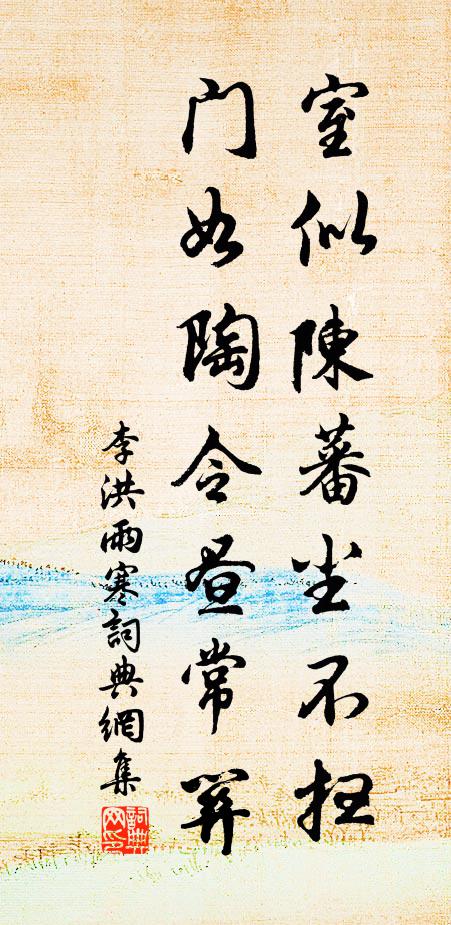 室似陳蕃尘不扫
门如陶令昼常关
李洪雨寒詞典網集
詞典
网印